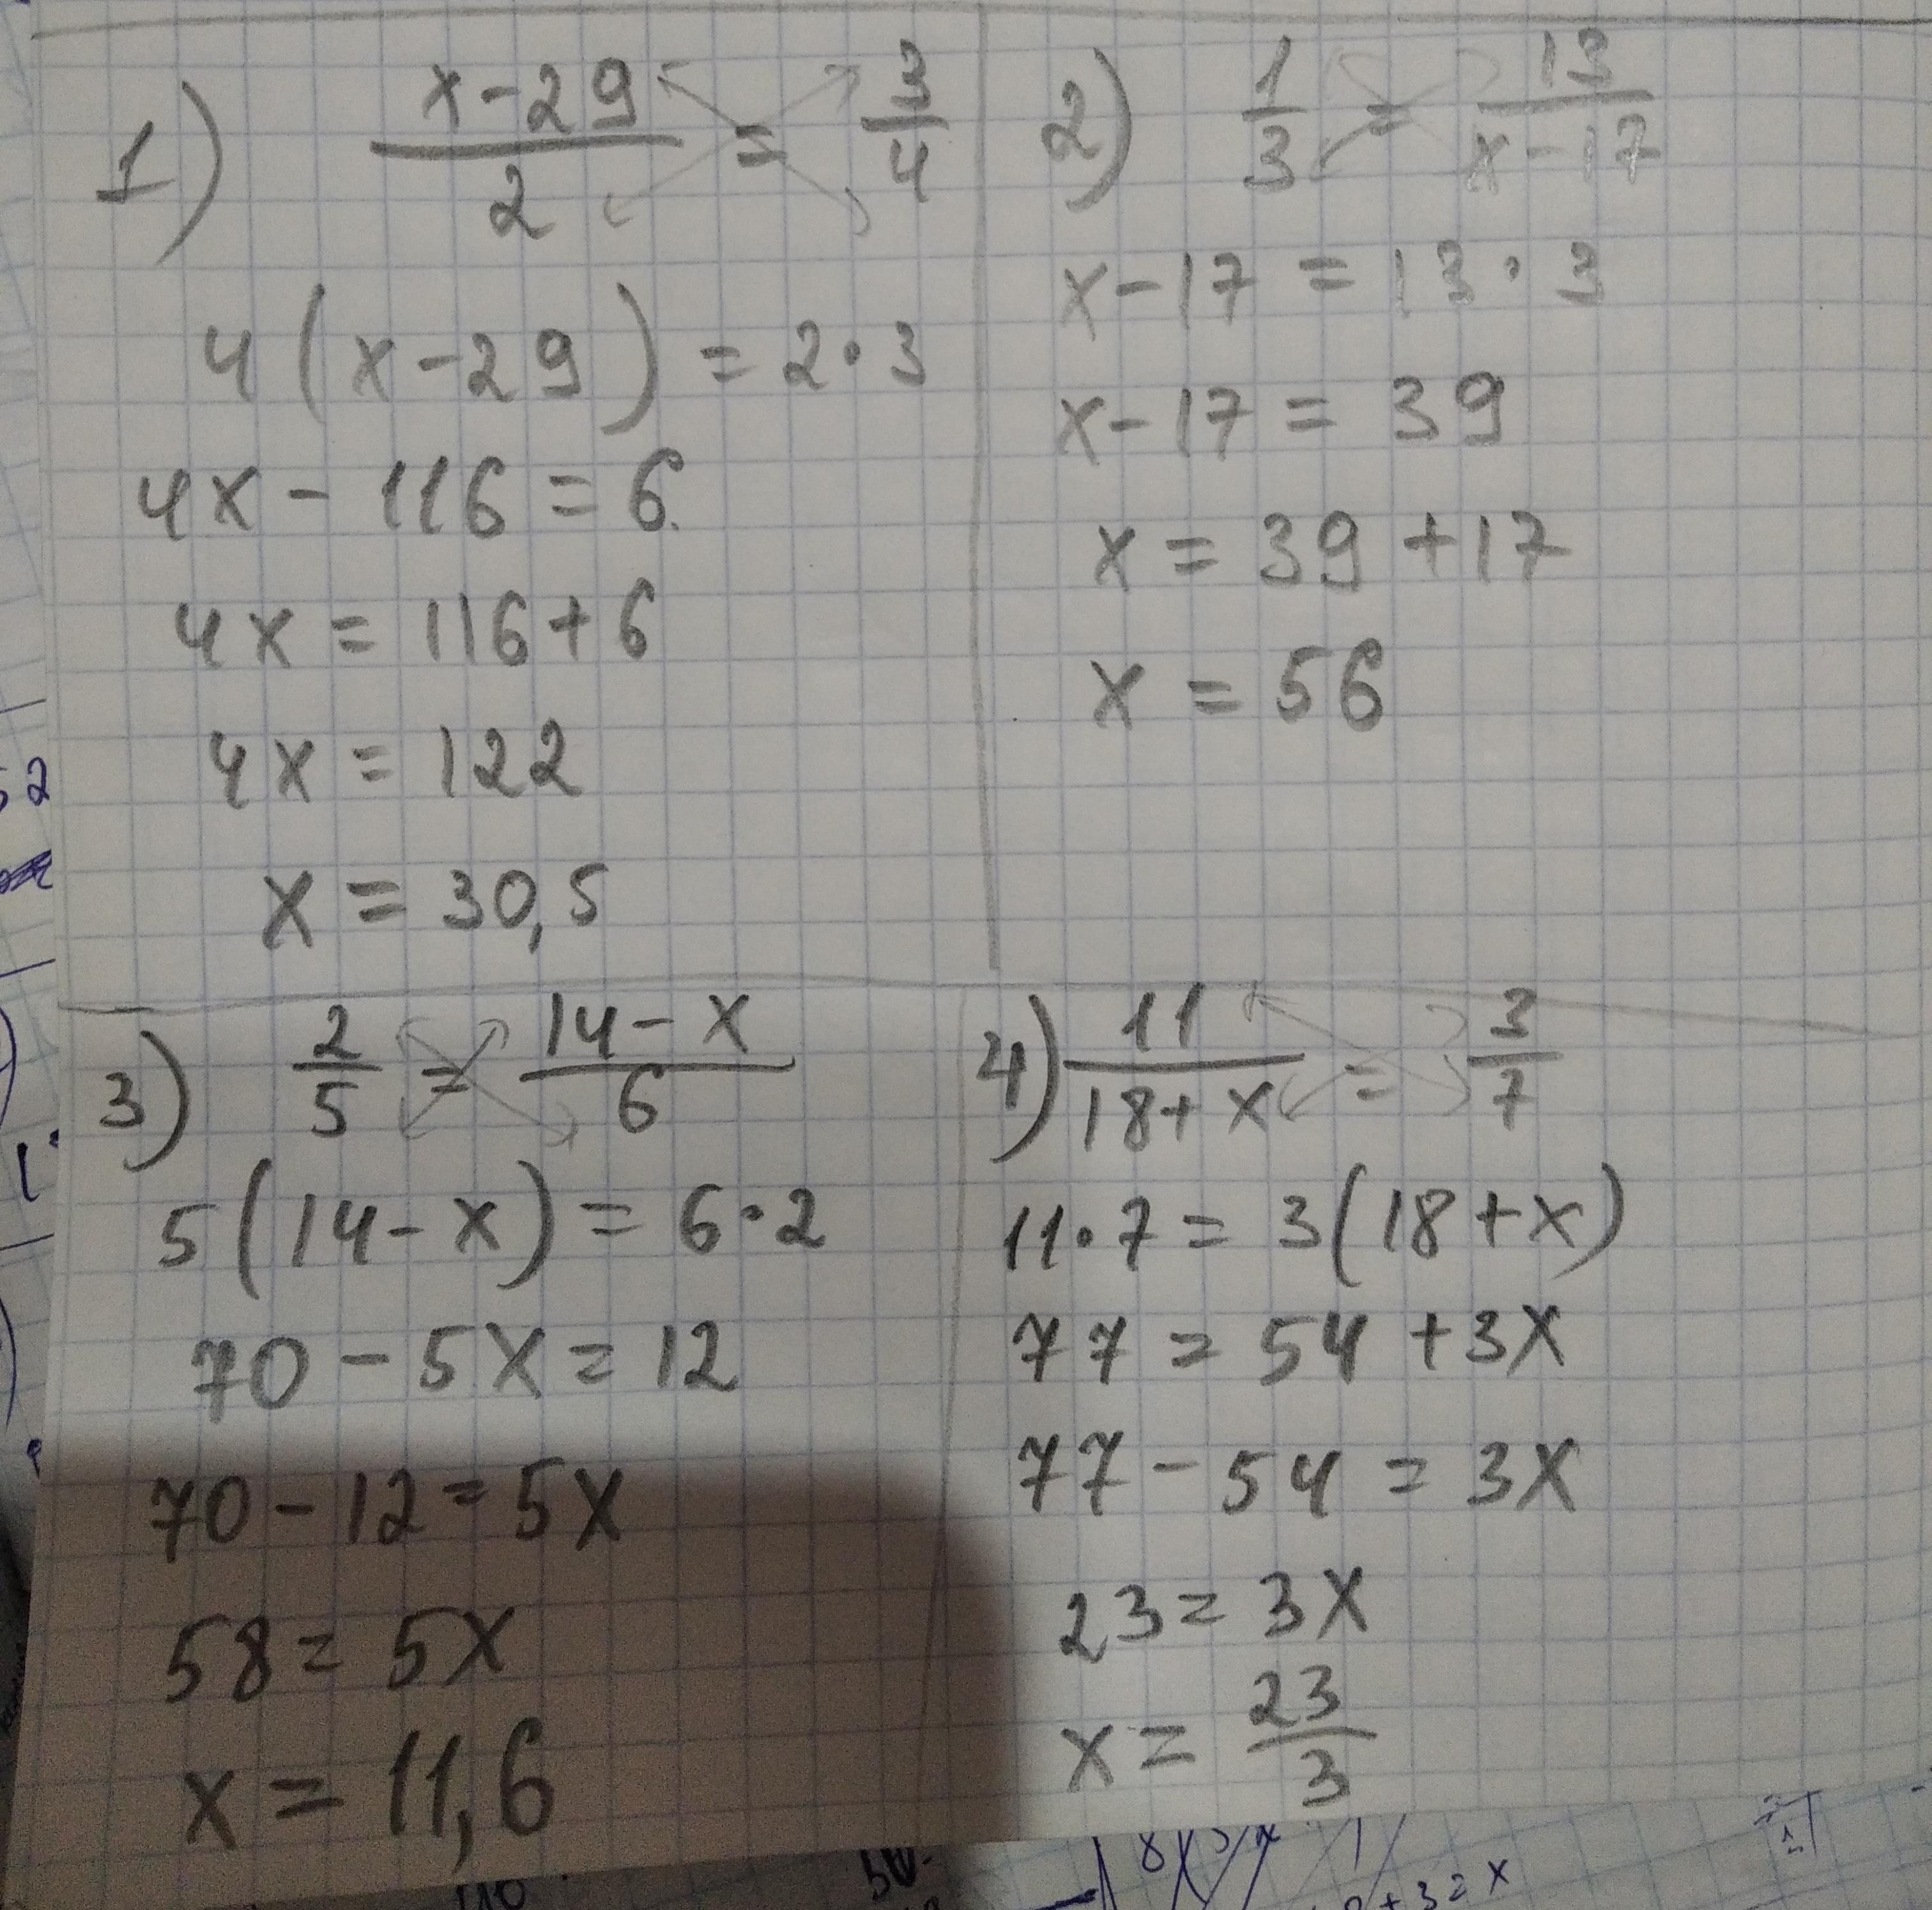 1) x-29/2 = 3/4
4(x-29) = 2·3
4x - 116 = 6
4x = 116+6
4x = 122
x = 30,5
2) 1/3 = 13/x-17
x-17 = 13·3
x-17 = 39
x = 39+17
x = 56
3) 2/5 = 14-x/6
5(14-x) = 6·2
70 - 5x = 12
70 - 12 = 5x
58 = 5x
x = 11,6
4) 11/18+x = 3/7
11·7 = 3(18+x)
77 = 54 + 3x
77 - 54 = 3x
23 = 3x
x = 23/3